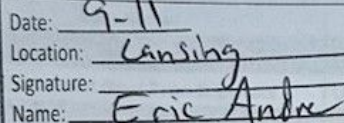 Date: 9-11
Location: Lansing
Signature:
Name: Eric Andre